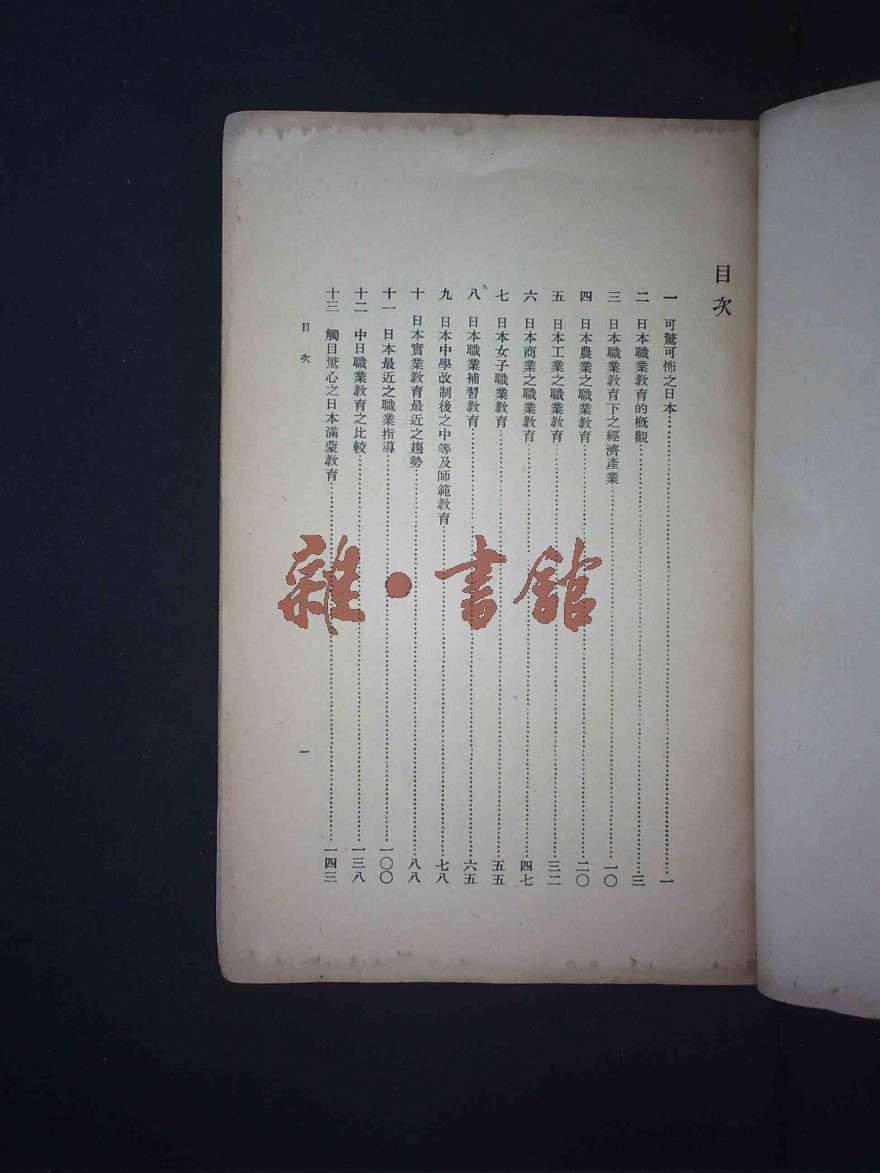 目次
一 可驚可怖之日本……一
二 日本職業教育的概觀……三
三 日本職業教育下之經濟產業……一〇
四 日本農業之職業教育……二〇
五 日本工業之職業教育……三二
六 日本商業之職業教育……四七
七 日本女子職業教育……五五
八 日本職業補習教育……六五
九 日本中學改制後之中等及師範教育……七八
十 日本實業教育最近之趨勢……八八
十一 日本最近之職業指導……一〇〇
十二 中日職業教育之比較……一三八
十三 觸目驚心之日本滿蒙教育……一四三
目次 一
雜·書館